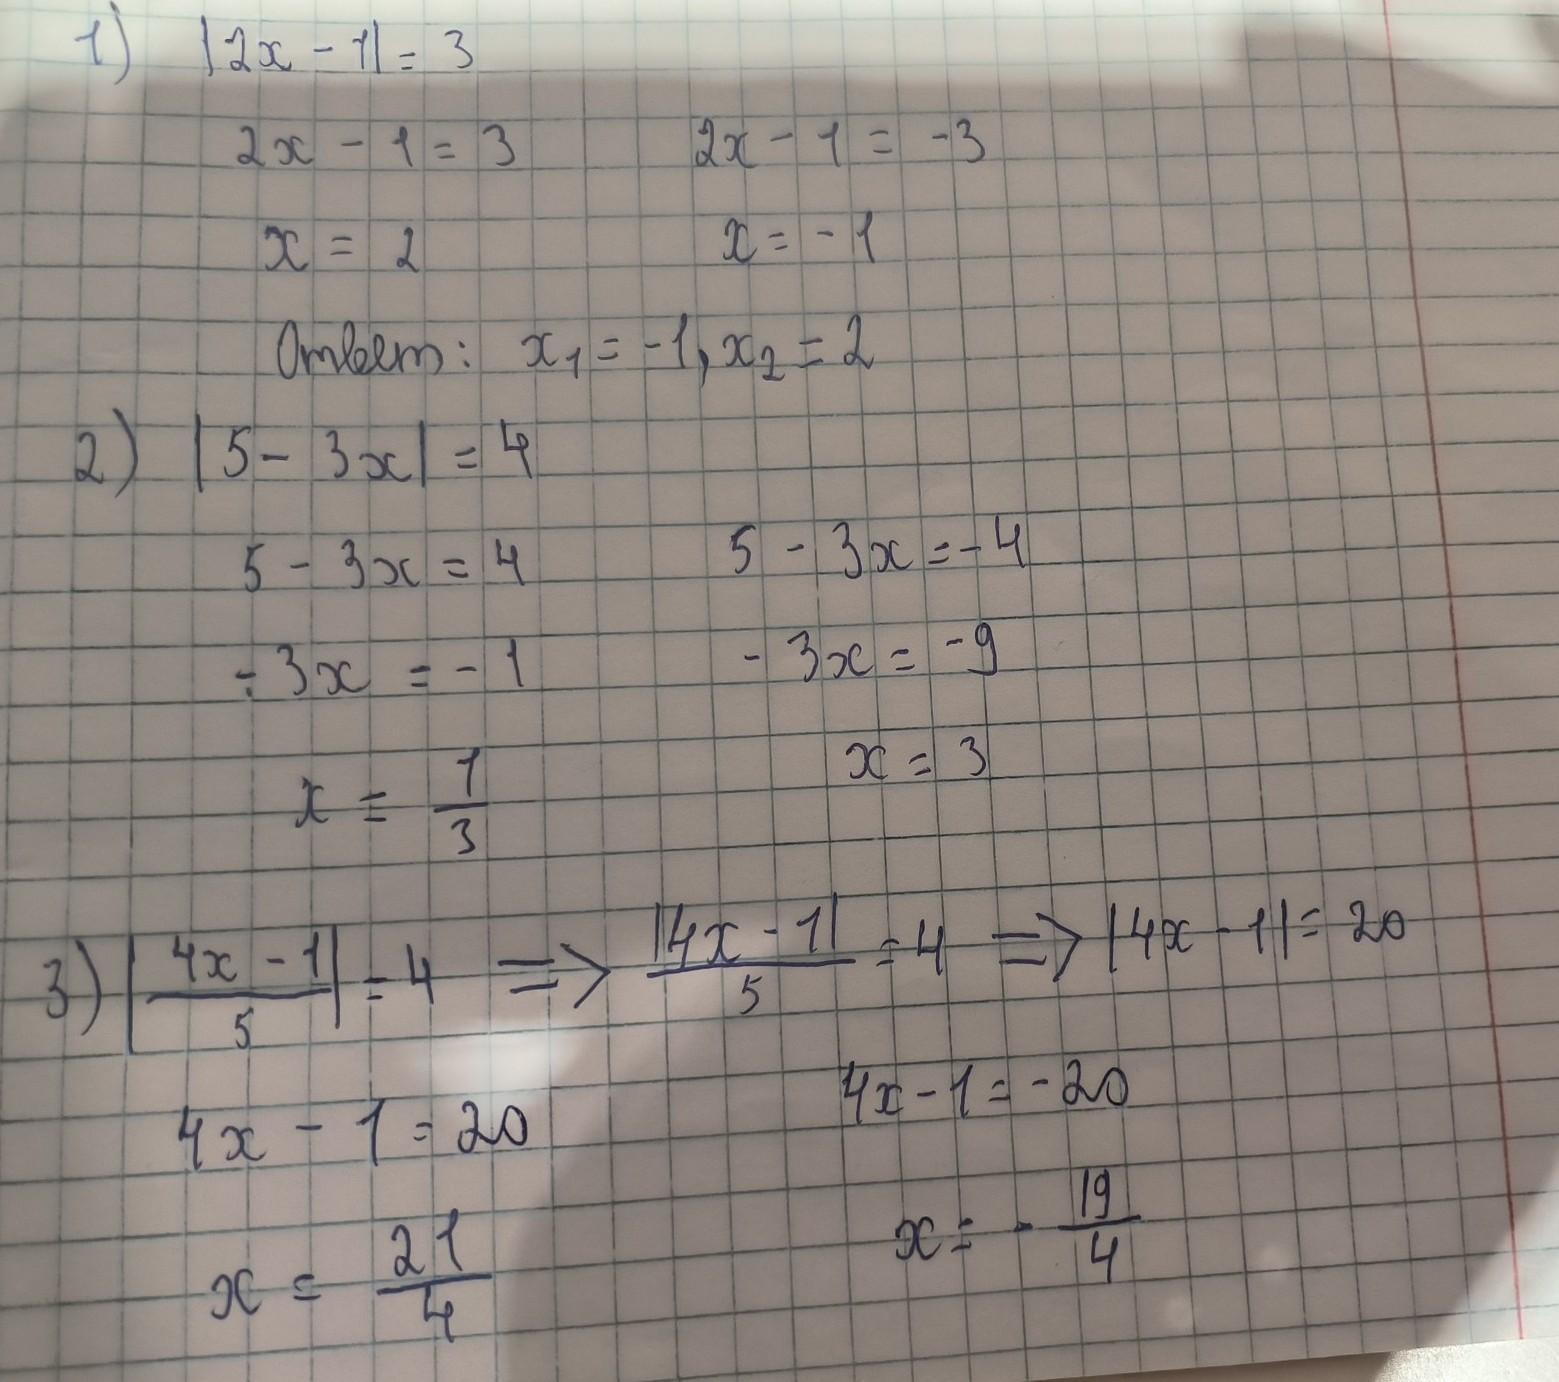 1) |2x - 1| = 3
2x - 1 = 3    2x - 1 = -3
x = 2    x = -1
Ответ: x₁ = -1, x₂ = 2
2) |5 - 3x| = 4
5 - 3x = 4    5 - 3x = -4
-3x = -1    -3x = -9
x = 1/3    x = 3
3) |(4x - 1)/5| = 4 => |4x - 1|/5 = 4 => |4x - 1| = 20
4x - 1 = 20    4x - 1 = -20
x = 21/4    x = -19/4